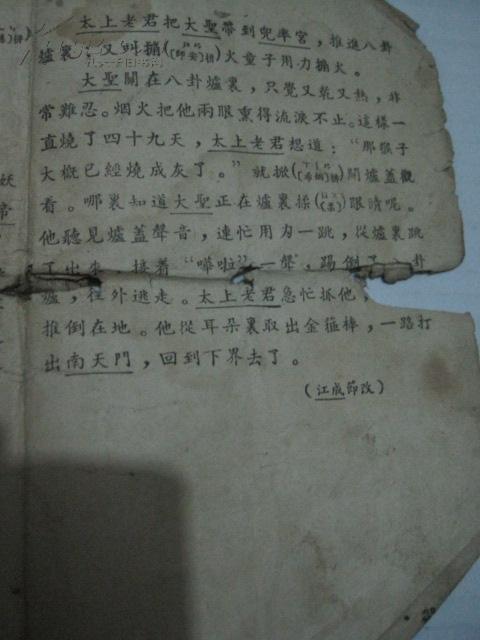 太上老君把大聖帶到兜率宮，推進八卦
爐裏，又叫搧火童子用力搧火。
大聖關在八卦爐裏，只覺又乾又熱，非
常難忍。烟火把他兩眼熏得流淚不止。這樣一
直燒了四十九天，太上老君想道：“那猴子
大概已經燒成灰了。”就掀開爐蓋觀
看。哪裏知道大聖正在爐裏揉眼睛呢。
他聽見爐蓋聲音，連忙用力一跳，從爐裏跳
了出來，接着“嘩啦”一聲，踢倒了八卦
爐，往外逃走。太上老君急忙抓他，
推倒在地。他從耳朵裏取出金箍棒，一路打
出南天門，回到下界去了。
（江成節改）
妖
帝